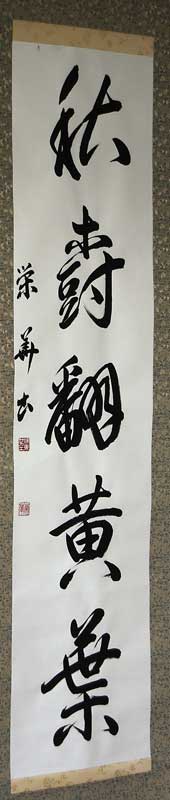 秋樹翻黄葉
栄華書